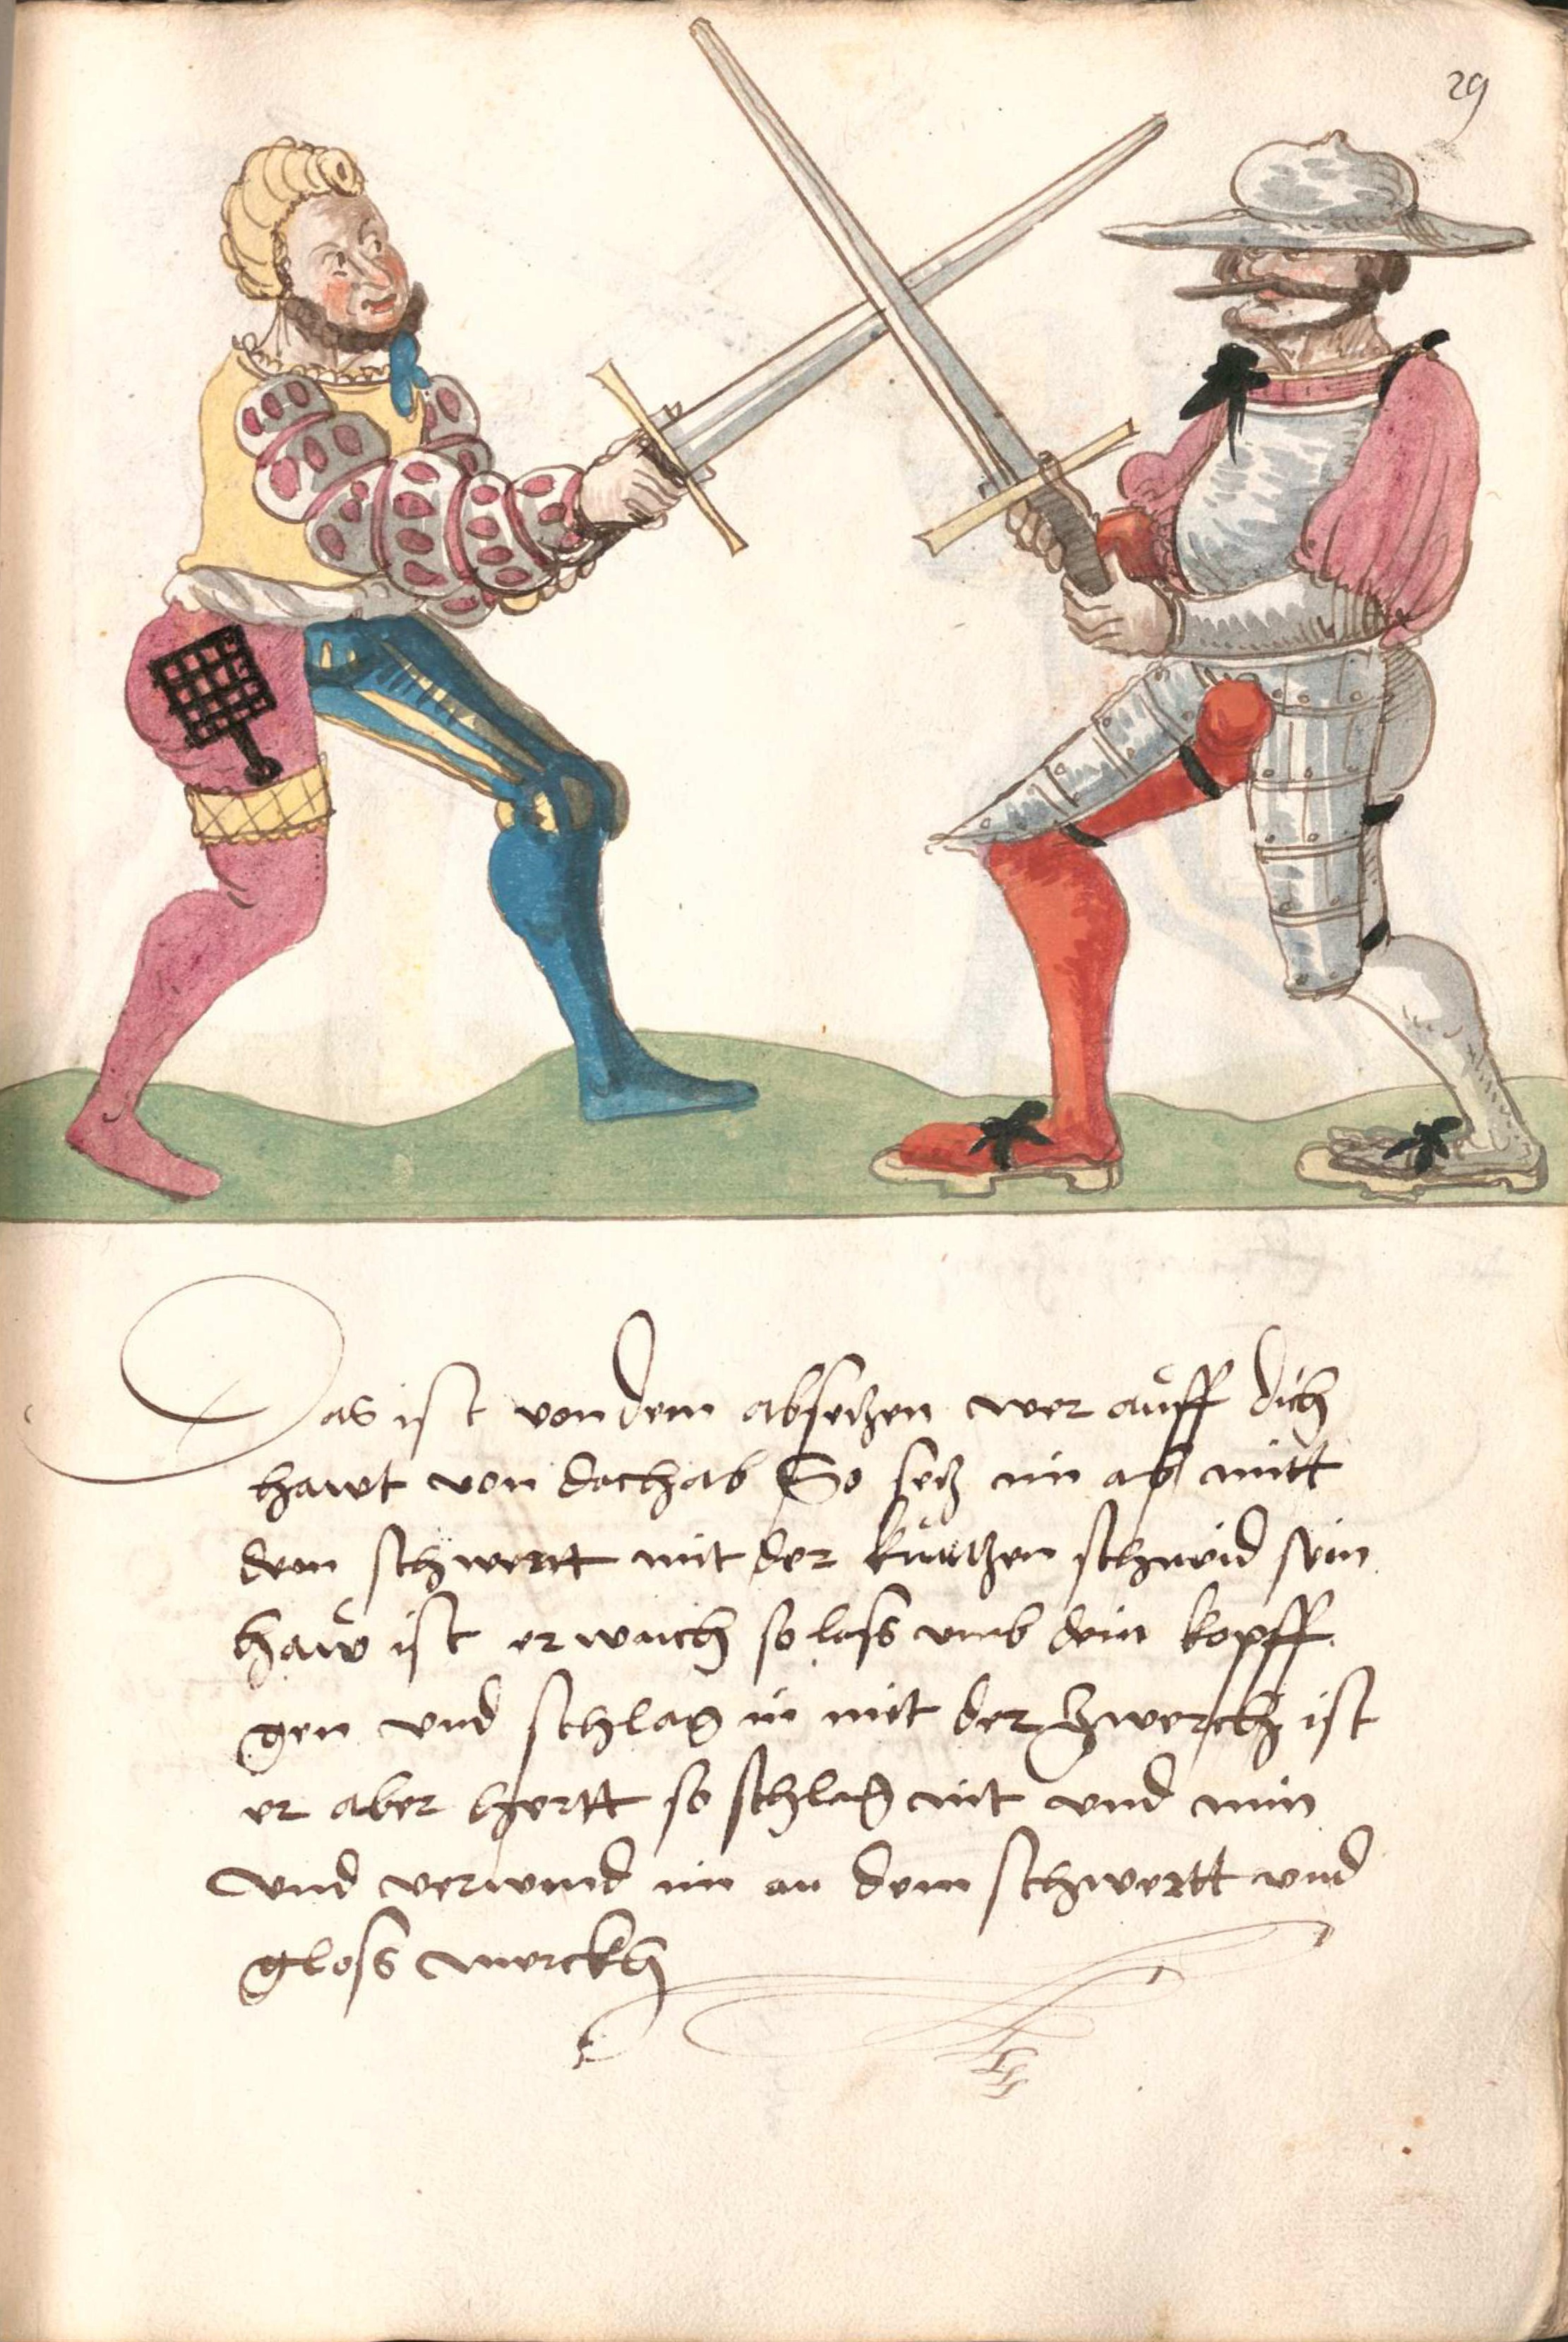 29
Das ist von dem absetzen wer auff dich
hawt von dach ab So setz im ab mitt
dem schwertt mit der kurtzen schneid sein
haw ist er waich so lass vmb dein kopff
gen vnd schlag in mit der zwerch ist
er aber hertt so schlag nit vnd
vnd verwind im an dem schwertt vnd
gloss merckh